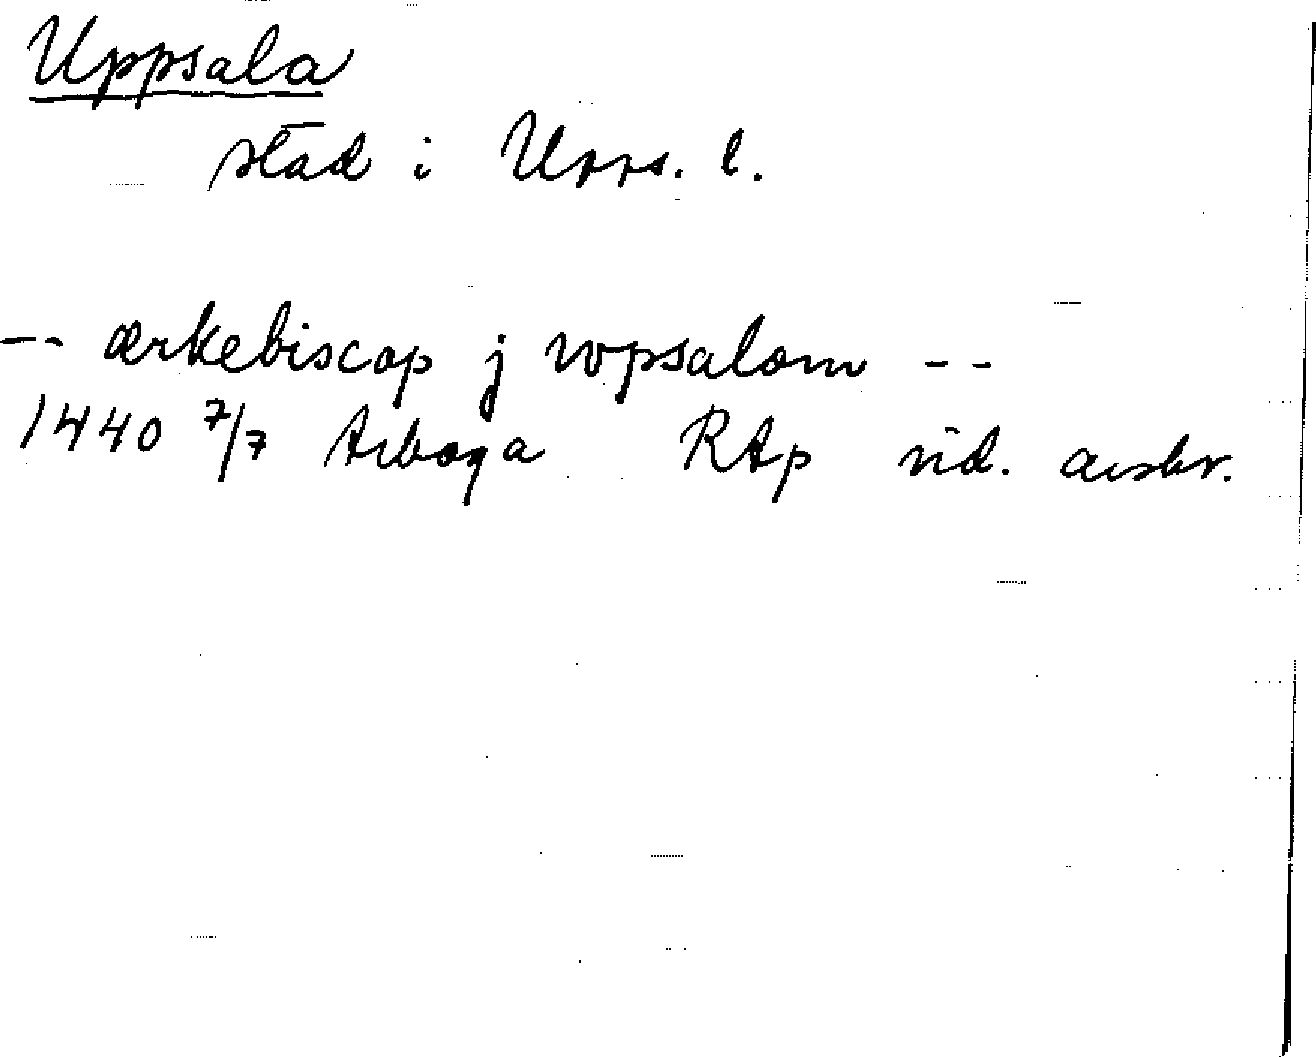 Uppsala
stad i Upps. l.
-- ærkebiscop j wpsalom --
1440 7/7 Arboga RAp vid. avskr.